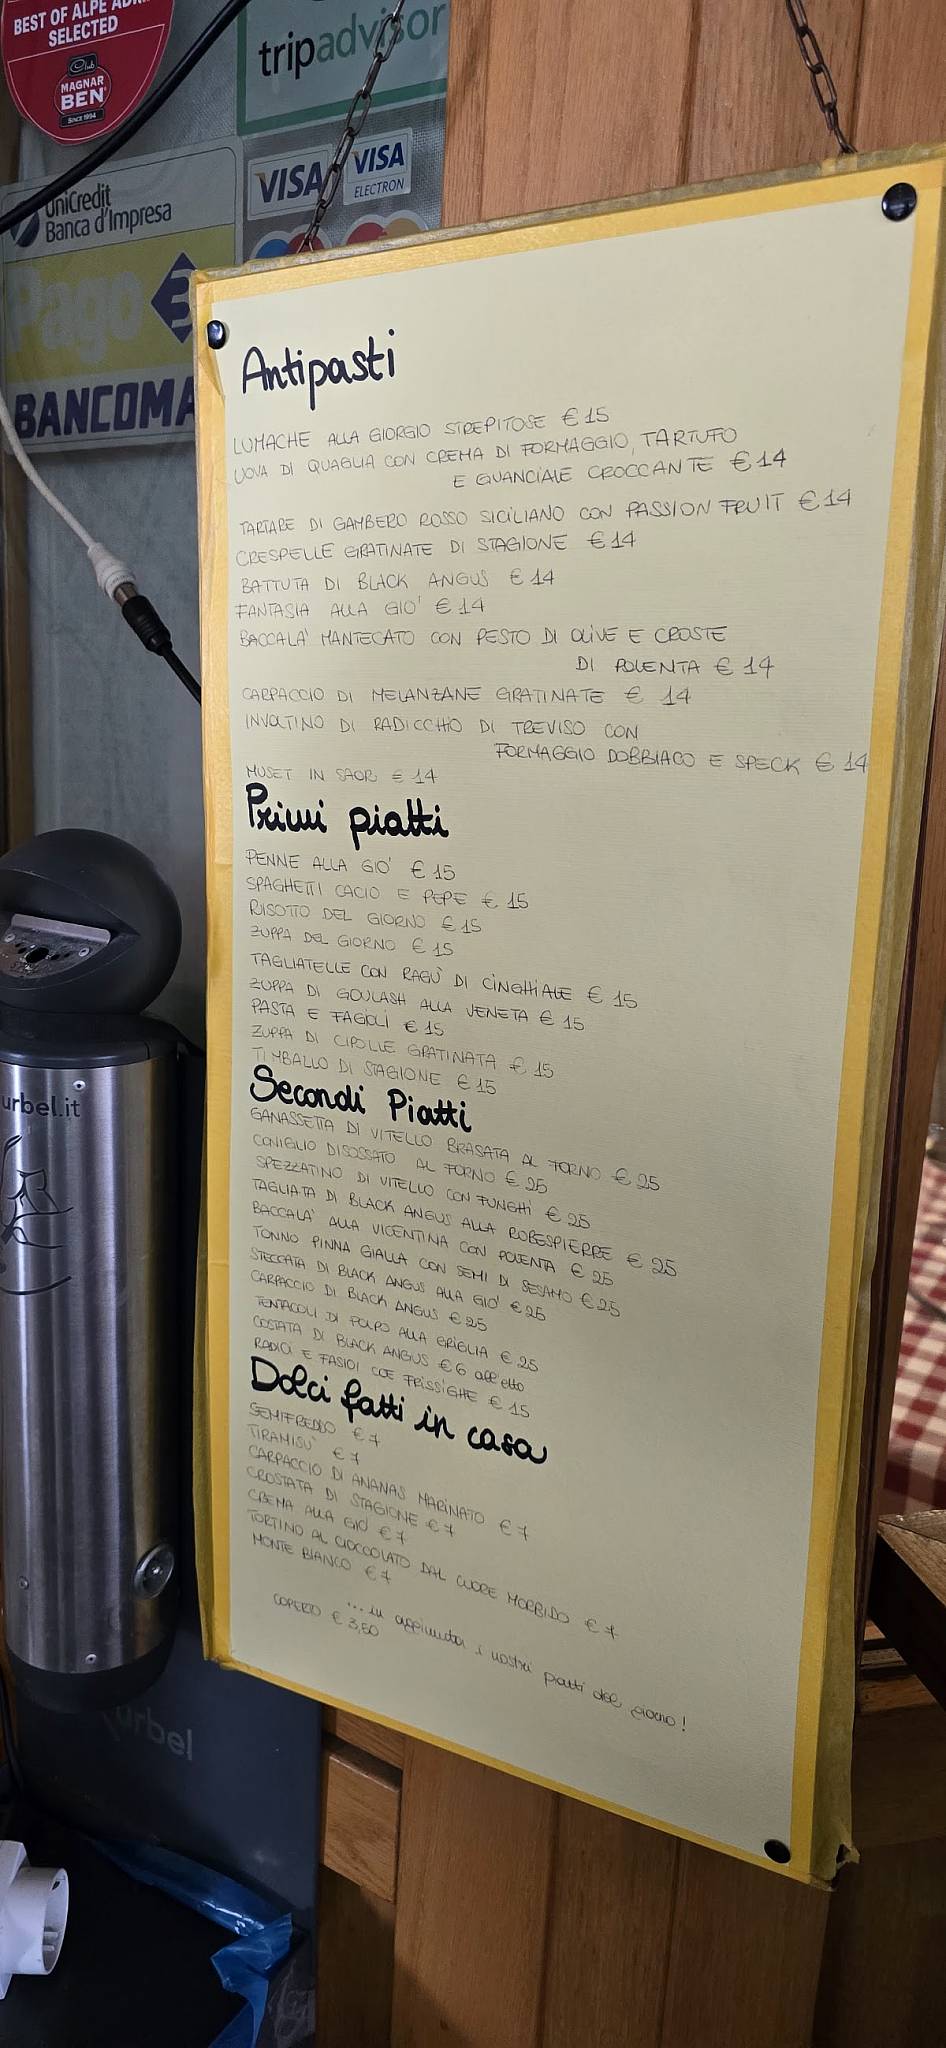 BEST OF ALPE ADRI
SELECTED
Club
MAGNAR
BEN
Since 1994
tripadvisor
UniCredit
Banca d'Impresa
VISA
VISA
ELECTRON
Pago
BANCOMA
Antipasti
LUMACHE ALLA GIORGIO STREPITOSE € 15
UOVA DI QUAGLIA CON CREMA DI FORMAGGIO, TARTUFO
E GUANCIALE CROCCANTE € 14
TARTARE DI GAMBERO ROSSO SICILIANO CON PASSION FRUIT € 14
CRESPELLE GRATINATE DI STAGIONE € 14
BATTUTA DI BLACK ANGUS € 14
FANTASIA ALLA GIO' € 14
BACCALA' MANTECATO CON PESTO DI OLIVE E CROSTE
DI POLENTA € 14
CARPACCIO DI MELANZANE GRATINATE € 14
INVOLTINO DI RADICCHIO DI TREVISO CON
FORMAGGIO DOBBIACO E SPECK € 14
MUSET IN SAOR € 14
Primi piatti
PENNE ALLA GIO' € 15
SPAGHETTI CACIO E PEPE € 15
RISOTTO DEL GIORNO € 15
ZUPPA DEL GIORNO € 15
TAGLIATELLE CON RAGU' DI CINGHIALE € 15
ZUPPA DI GOULASH ALLA VENETA € 15
PASTA E FAGIOLI € 15
ZUPPA DI CIPOLLE GRATINATA € 15
TIMBALLO DI STAGIONE € 15
Secondi Piatti
GANASSETTA DI VITELLO BRASATA AL FORNO € 25
CONIGLIO DISOSSATO AL FORNO € 25
SPEZZATINO DI VITELLO CON FUNGHI € 25
TAGLIATA DI BLACK ANGUS ALLA ROBESPIERRE € 25
BACCALA' ALLA VICENTINA CON POLENTA € 25
TONNO PINNA GIALLA CON SEMI DI SESAMO € 25
STECCATA DI BLACK ANGUS ALLA GIO' € 25
CARPACCIO DI BLACK ANGUS € 25
TENTACOLI DI POLPO ALLA GRIGLIA € 25
COSTATA DI BLACK ANGUS € 6 all'etto
RADICI E FASIOI COE FRISSIGHE € 15
Dolci fatti in casa
SEMIFREDDO € 7
TIRAMISU' € 7
CARPACCIO DI ANANAS MARINATO € 7
CROSTATA DI STAGIONE € 7
CREMA ALLA GIO' € 7
TORTINO AL CIOCCOLATO DAL CUORE MORBIDO € 7
MONTE BIANCO € 7
...in aggiunta i nostri piatti del giorno!
COPERTO € 3,50
urbel.it
urbel